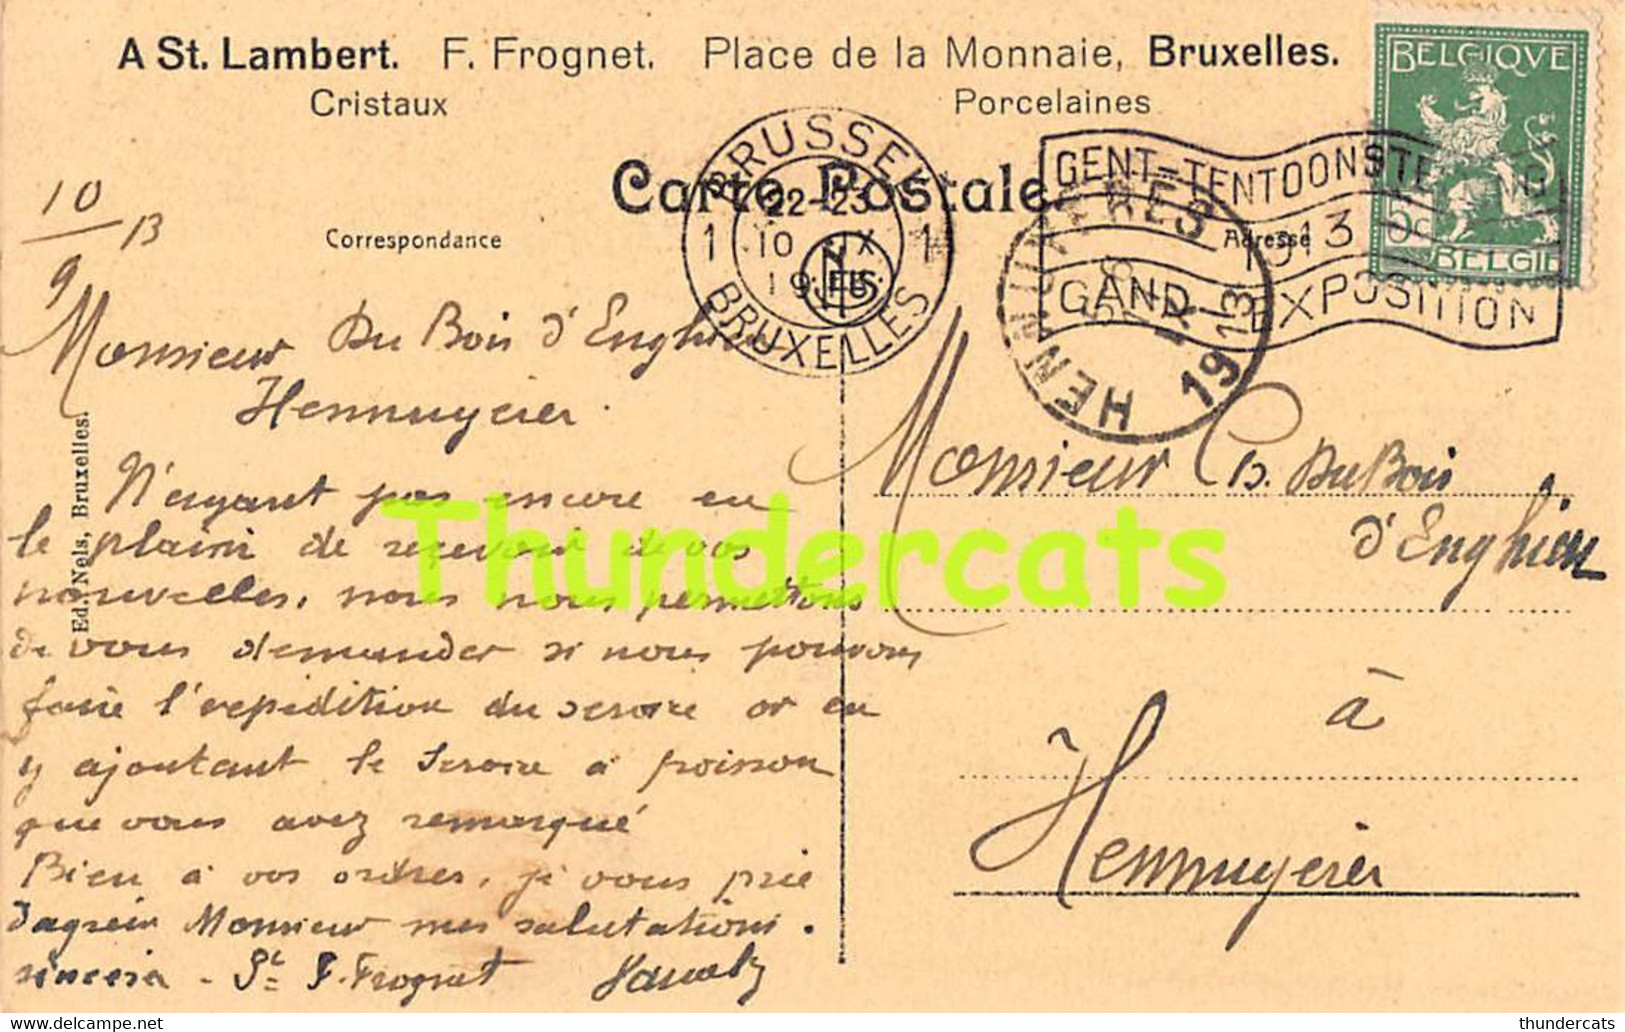 A St. Lambert. F. Frognet. Place de la Monnaie, Bruxelles.
Cristaux Porcelaines
Carte Postale
Correspondance Adresse
BRUSSEL
1 22-23 1
10 IX
BRUXELLES
GENT-TENTOONSTELLING
1913
GAND EXPOSITION
HENNUYÈRES
1913
BELGIQVE
5c
BELGIË
10/9 13
Monsieur Du Bois d'Enghien
Hennuyères.
N'ayant pas encore eu
le plaisir de recevoir de vos
nouvelles, nous nous permettons
de vous demander si nous pouvons
faire l'expédition du service or en
y ajoutant le service à poisson
que vous avez remarqué
Bien à vos ordres, je vous prie
d'agréer Monsieur mes salutations.
sincères - St F. Frognet
Monsieur D. DuBois
d'Enghien
à
Hennuyères
Ed. Nels, Bruxelles.
Thundercats
delcampe.net
thundercats